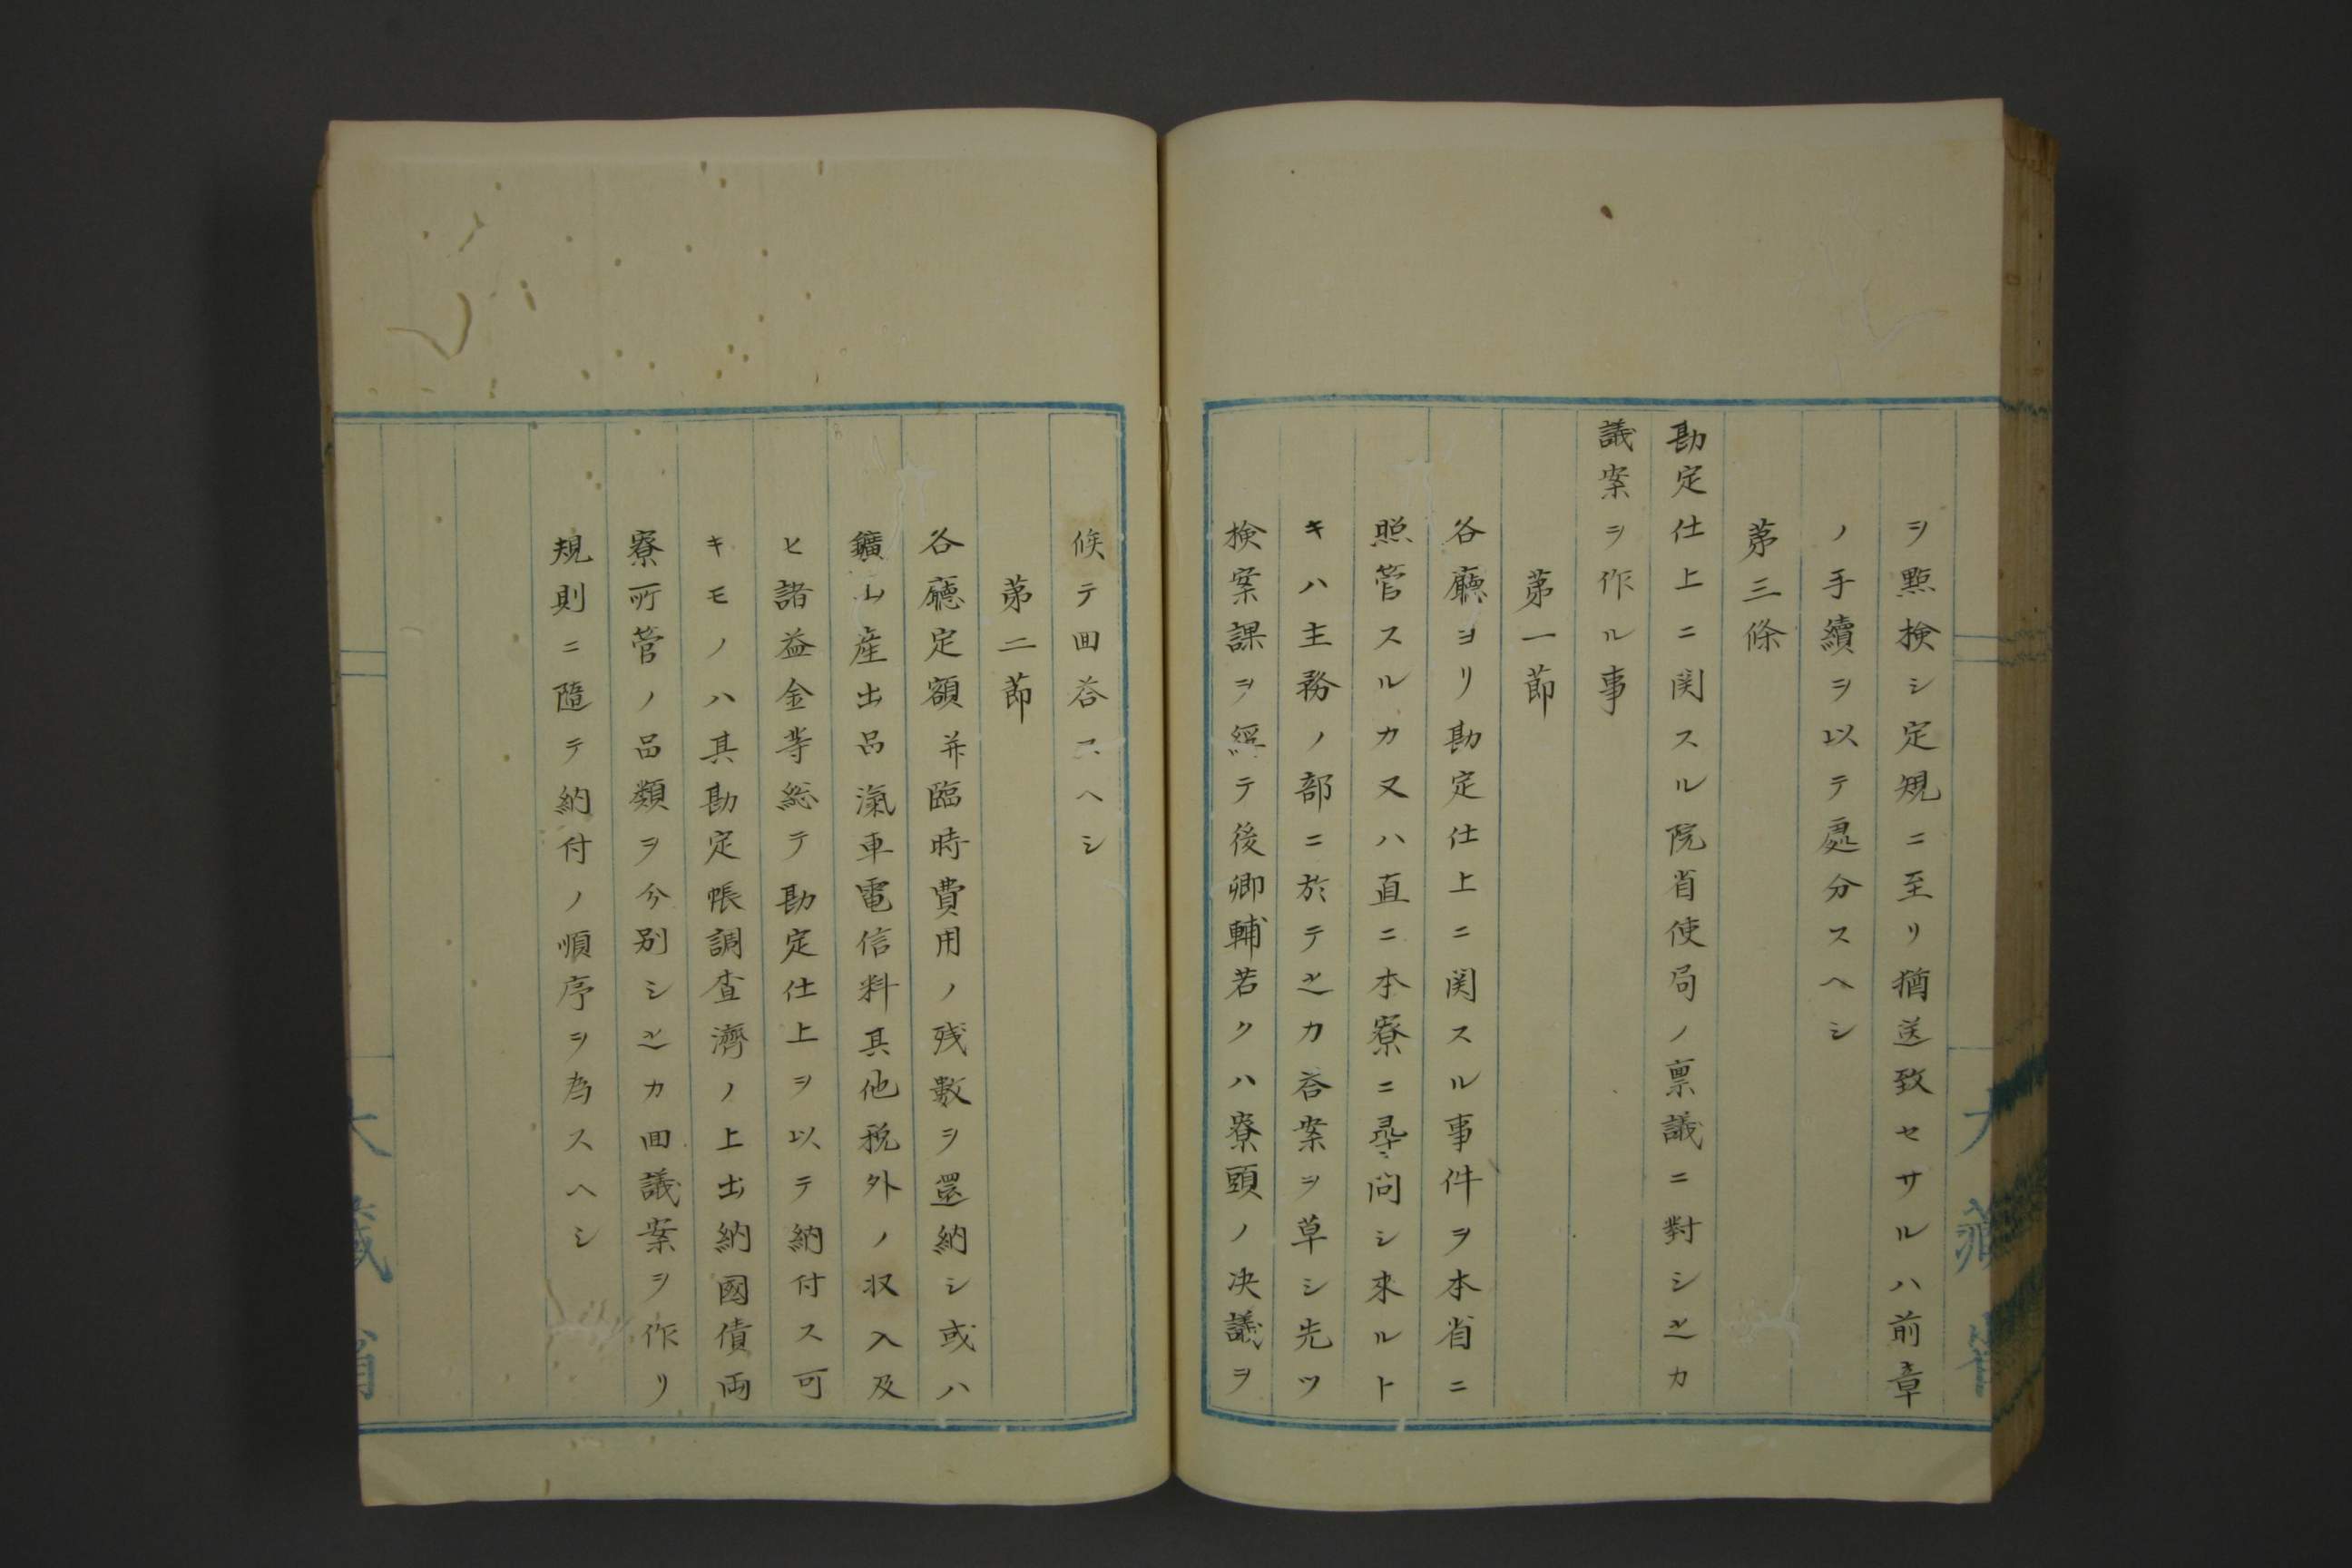 ヲ點検シ定規ニ至リ猶送致セサルハ前章
ノ手續ヲ以テ處分スヘシ
第三條
勘定仕上ニ関スル院省使局ノ禀議ニ對シ之カ
議案ヲ作ル事
第一節
各廳ヨリ勘定仕上ニ関スル事件ヲ本省ニ
照管スルカ又ハ直ニ本寮ニ尋問シ来ルト
キハ主務ノ部ニ於テ之カ答案ヲ草シ先ツ
検案課ヲ経テ後卿輔若クハ寮頭ノ决議ヲ
候テ回答スヘシ
第二節
各廳定額并臨時費用ノ残數ヲ還納シ或ハ
鑛山産出品滊車電信料其他税外ノ収入及
ヒ諸益金等総テ勘定仕上ヲ以テ納付ス可
キモノハ其勘定帳調査濟ノ上出納國債両
寮所管ノ品類ヲ分別シ之カ回議案ヲ作リ
規則ニ隨テ納付ノ順序ヲ為スヘシ
大藏省
大藏省